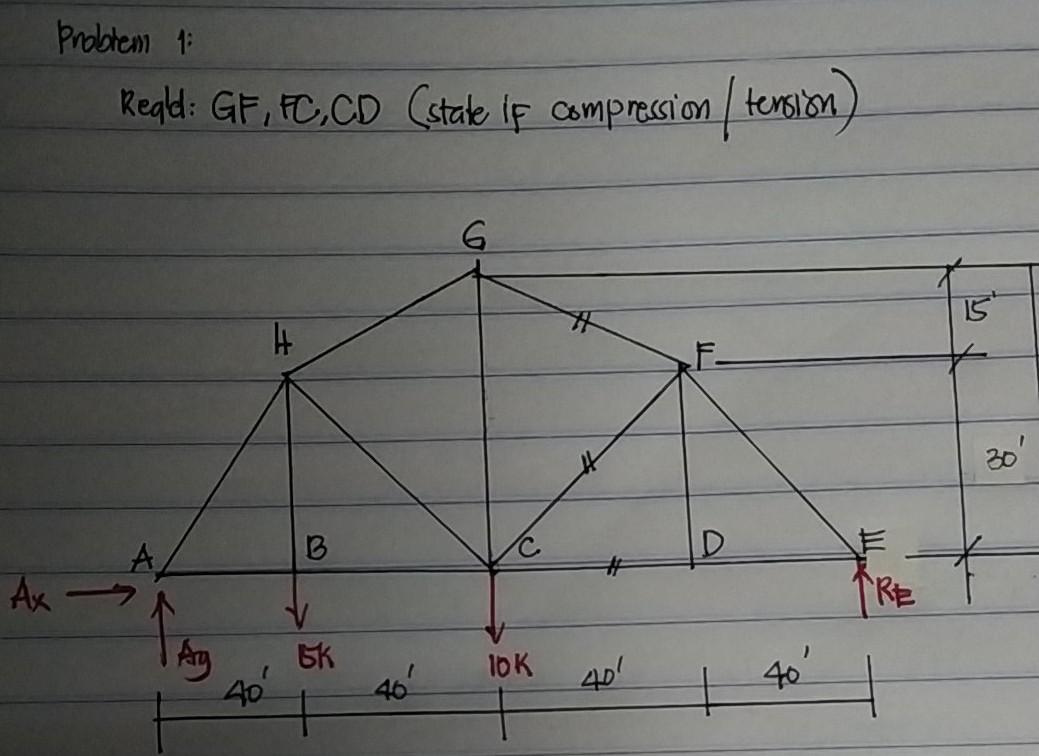 Problem 1:
Reqd: GF, FC, CD (state if compression / tension)
G
15'
H
F
30'
A
B
C
D
E
Ax
RE
Ay
5K
10K
40'
40'
40'
40'